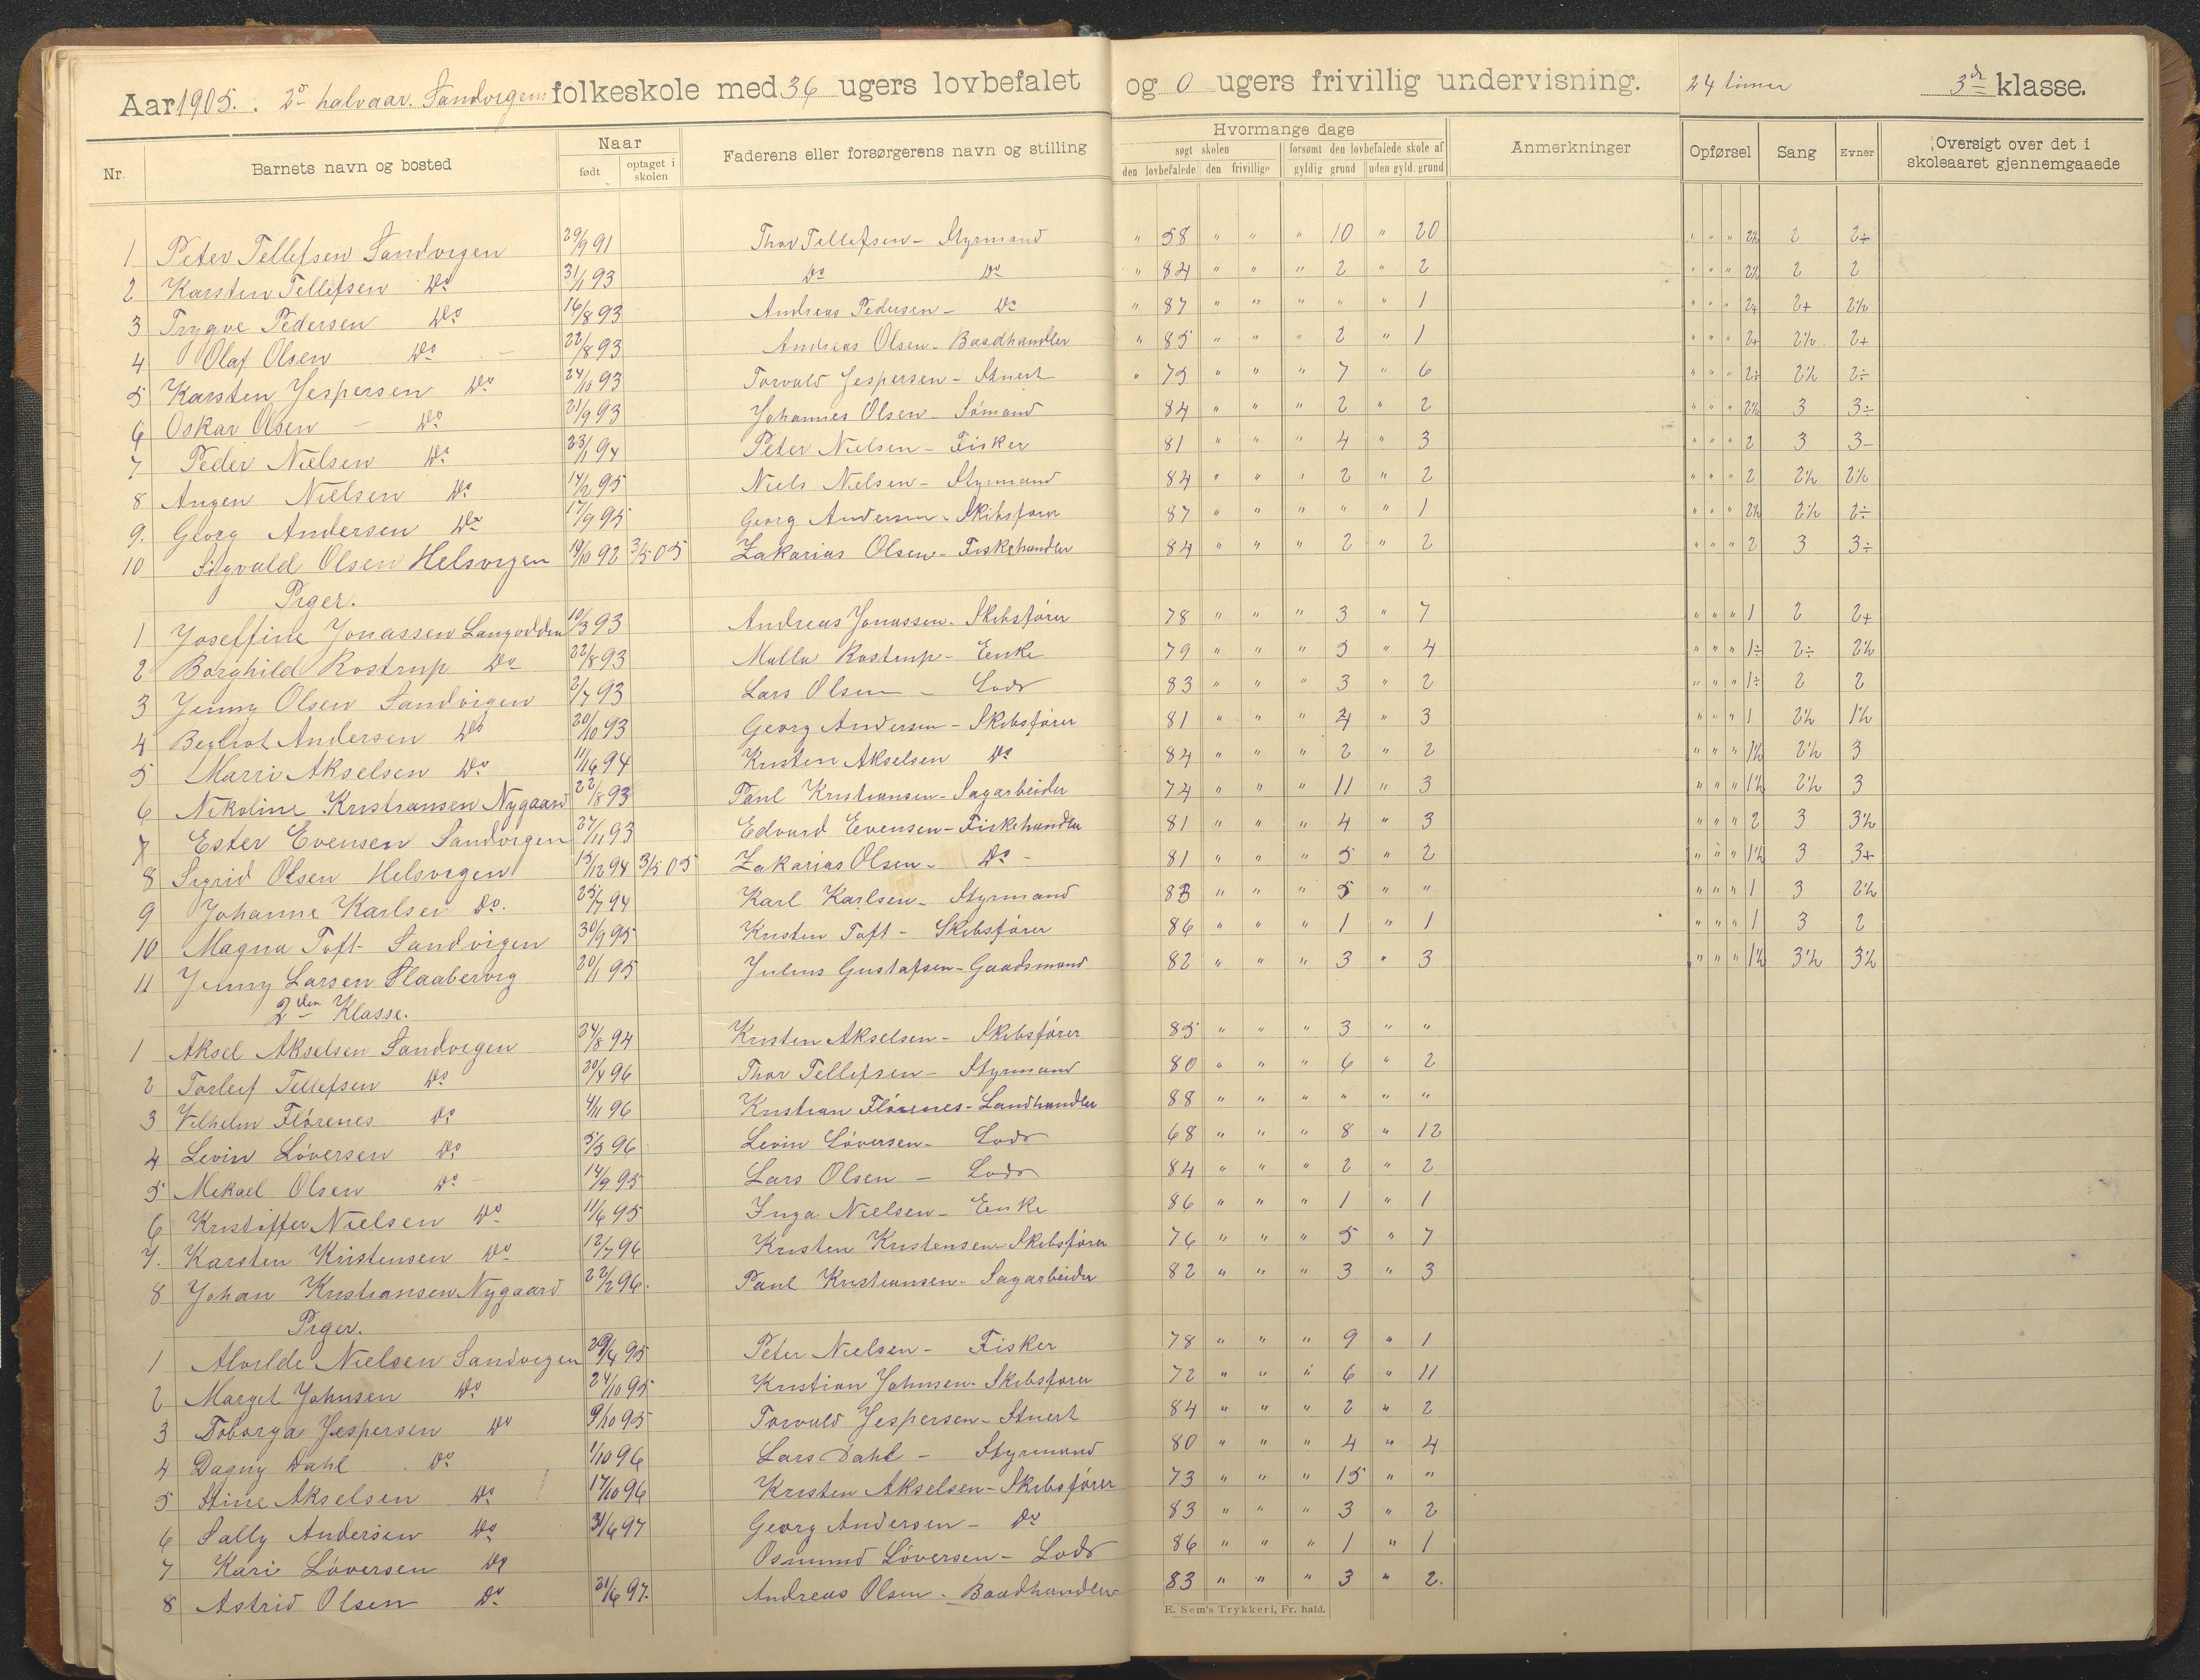 Aar 1905. 2º halvaar. Sandvigens folkeskole med 36 ugers lovbefalet og 0 ugers frivillig undervisning. 24 timer 3die klasse.
Nr. Barnets navn og bosted Naar født optaget i skolen Faderens eller forsørgerens navn og stilling Hvormange dage søgt skolen den lovbefalede den frivillige forsømt den lovbefalede skole af gyldig grund uden gyld. grund Anmerkninger Opførsel Sang Evner Oversigt over det i skoleaaret gjennemgaaede
1 Peter Tellefsen Sandvigen 29/9 91 Thor Tellefsen - Styrmand " 58 " " " 10 " 20 " " " 2½ 2 2÷
2 Karsten Tellefsen Do 31/1 93 Do Do " 84 " " " 2 " 2 " " " 2½ 2 2
3 Trygve Pedersen Do 16/8 93 Andreas Pedersen - Do " 87 " " " " " 1 " " " 2+ 2+ 2½
4 Olaf Olsen Do 22/8 93 Andreas Olsen - Baadhandler " 85 " " " 2 " 1 " " " 2+ 2½ 2+
5 Karsten Jespersen Do 24/10 93 Torvald Jespersen - Stuert " 75 " " " 7 " 6 " " " 2+ 2½ 2÷
6 Oskar Olsen - Do 21/9 93 Johannes Olsen - Sømand 84 " " " 2 " 2 " " " 2½ 3 3÷
7 Peder Nielsen Do 23/1 94 Peter Nielsen - Fisker 81 " " " 4 " 3 " " " 2 3 3-
8 Angen Nielsen Do 14/2 95 Niels Nielsen - Styrmand 84 " " " 2 " 2 " " " 2 2½ 2½
9. Georg Andersen Do 17/9 95 Georg Andersen - Skibsfører 87 " " " " " 1 " " " 2½ 2½ 2÷
10 Sigvald Olsen Helsvigen 19/10 92 3/5 05 Zakarias Olsen - Fiskehandler 84 " " " 2 " 2 " " " 2 3 3÷
Piger.
1 Joseffine Jonassen Langodden 10/3 93 Andreas Jonassen - Skibsfører 78 " " " 3 " 7 " " " 1 2 2+
2 Borghild Rostrup Do 22/8 93 Malla Rostrup - Enke 79 " " " 5 " 4 " " " 1÷ 2÷ 2½
3 Jenny Olsen Sandvigen 2/7 93 Lars Olsen - Lods 83 " " " 3 " 2 " " " 1÷ 2 2
4 Begliot Andersen Do 20/10 93 Georg Andersen - Skibsfører 81 " " " 4 " 3 " " " 1 2½ 1½
5 Marri Akselsen Do 94 Kristen Akselsen Do 84 " " " 2 " 2 " " " 1½ 2½ 3
6 Nikoline Kristiansen Nygaard 22/8 93 Paul Kristiansen - Sagarbeider 74 " " " 11 " 3 " " " 1½ 2½ 3
7 Ester Evensen Sandvigen 27/11 93 Edvard Evensen - Fiskehandler 81 " " " 4 " 3 " " " 2 3 3½
8 Sigrid Olsen Helsvigen 15/12 94 3/5 05 Zakarias Olsen - Do - 81 " " " 5 " 2 " " " 1½ 3 3+
9 Johanne Karlsen Do. 25/7 94 Karl Karlsen - Styrmand 83 " " " 5 " " " " " 1 3 2½
10 Magna Toft - Sandvigen 30/9 95 Kristen Toft - Skibsfører 86 " " " 1 " 1 " " " 1 3 2
11 Jenny Larsen Slaabervig 20/1 95 Julius Gustafsen - Gaardsmand 82 " " " 3 " 3 " " " 1½ 3½ 3½
2den Klasse.
1 Aksel Akselsen Sandvigen 24/8 94 Kristen Akselsen - Skibsfører 85 " " " 3 " "
2 Torleif Tellefsen Do 20/4 96 Thor Tellefsen - Styrmand 80 " " " 6 " 2
3 Vilhelm Flørenes Do 4/11 96 Kristian Flørenes - Landhandler 88 " " " " " "
4 Levin Løversen Do 5/3 96 Levin Løversen - Lods 68 " " " 8 " 12
5 Mikael Olsen Do - 14/9 95 Lars Olsen - Lods 84 " " " 2 " 2
6 Kristoffer Nielsen Do 11/6 95 Inga Nielsen - Enke 86 " " " 1 " 1
7. Karsten Kristensen Do 12/7 96 Kristen Kristensen - Skibsfører 76 " " " 5 " 7
8 Johan Kristiansen Nygaard 22/2 96. Paul Kristiansen - Sagarbeider 82 " " " 3 " 3
Piger.
1 Alvilde Nielsen Sandvigen 29/4 95 Peter Nielsen - Fisker 78 " " " 9 " 1
2 Margit Johnsen Do 24/10 95 Kristian Johnsen - Skibsfører 72 " " " 6 " 11
3 Toborga Jespersen Do 9/10 95 Torvald Jespersen - Stuert 84 " " " 2 " 2
4 Dagny Dahl Do 1/10 96 Lars Dahl - Styrmand 80 " " " 4 " 4
5 Stine Akselsen Do 17/10 96 Kristen Akselsen - Skibsfører 73 " " " 15 " "
6 Sally Andersen Do 97 Georg Andersen - Do 83 " " " 3 " 2
7 Kari Løversen Do Osmund Løversen - Lods 86 " " " 1 " 1
8 Astrid Olsen Do 21/6 97. Andreas Olsen - Baadhandler 83 " " " 3 " 2.
E. Sem's Trykkeri, Fr. hald.